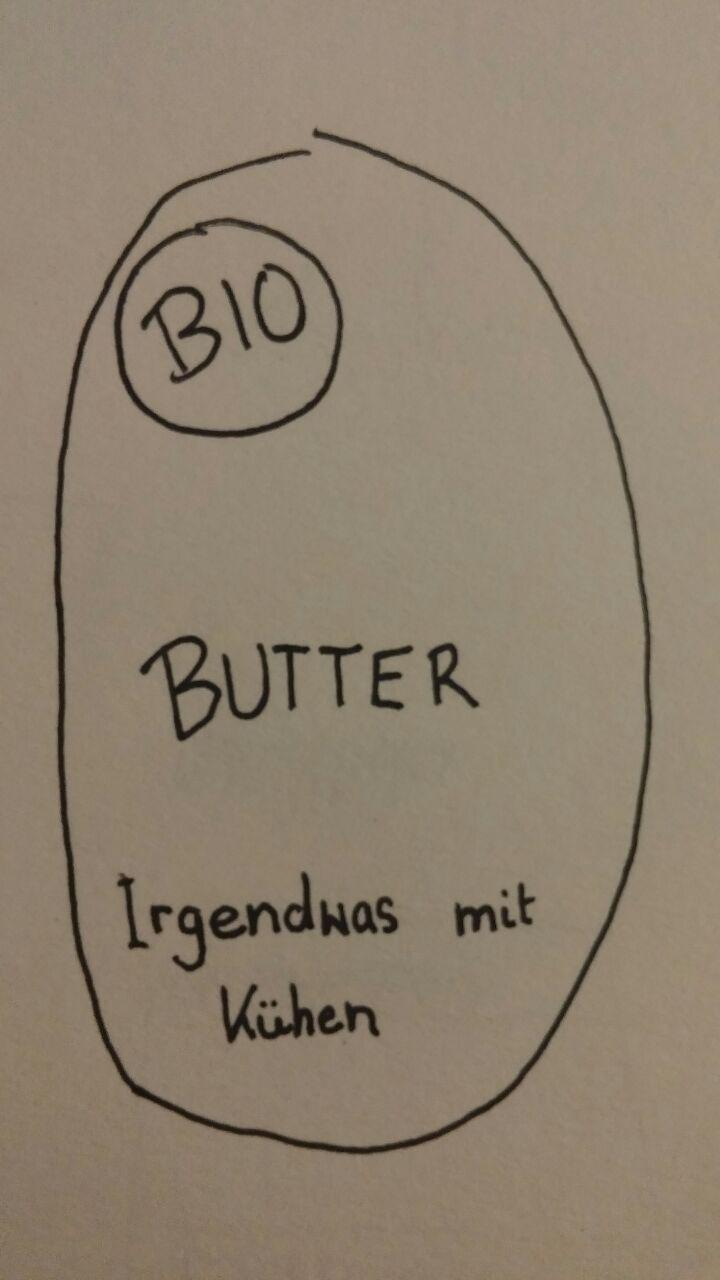 BIO
BUTTER
Irgendwas mit
Kühen